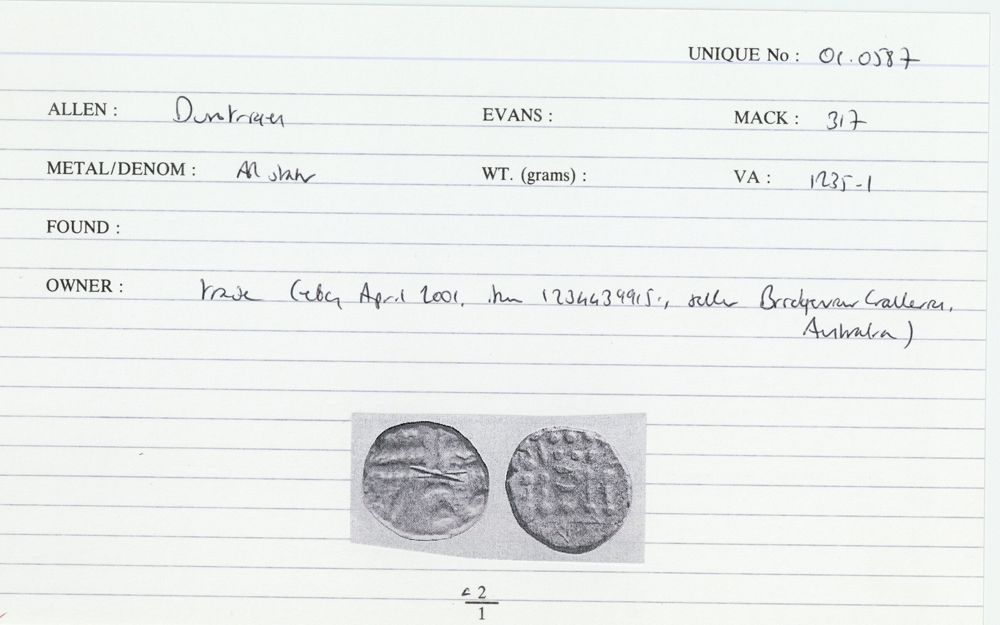 UNIQUE No : 01.0587
ALLEN : Durotrigan EVANS : MACK : 317
METAL/DENOM : AR stater WT. (grams) : VA : 1235-1
FOUND :
OWNER : trade (eBay April 2001, item 1234439915, seller Bridgevaur Galleries,
Australia)
c 2
1